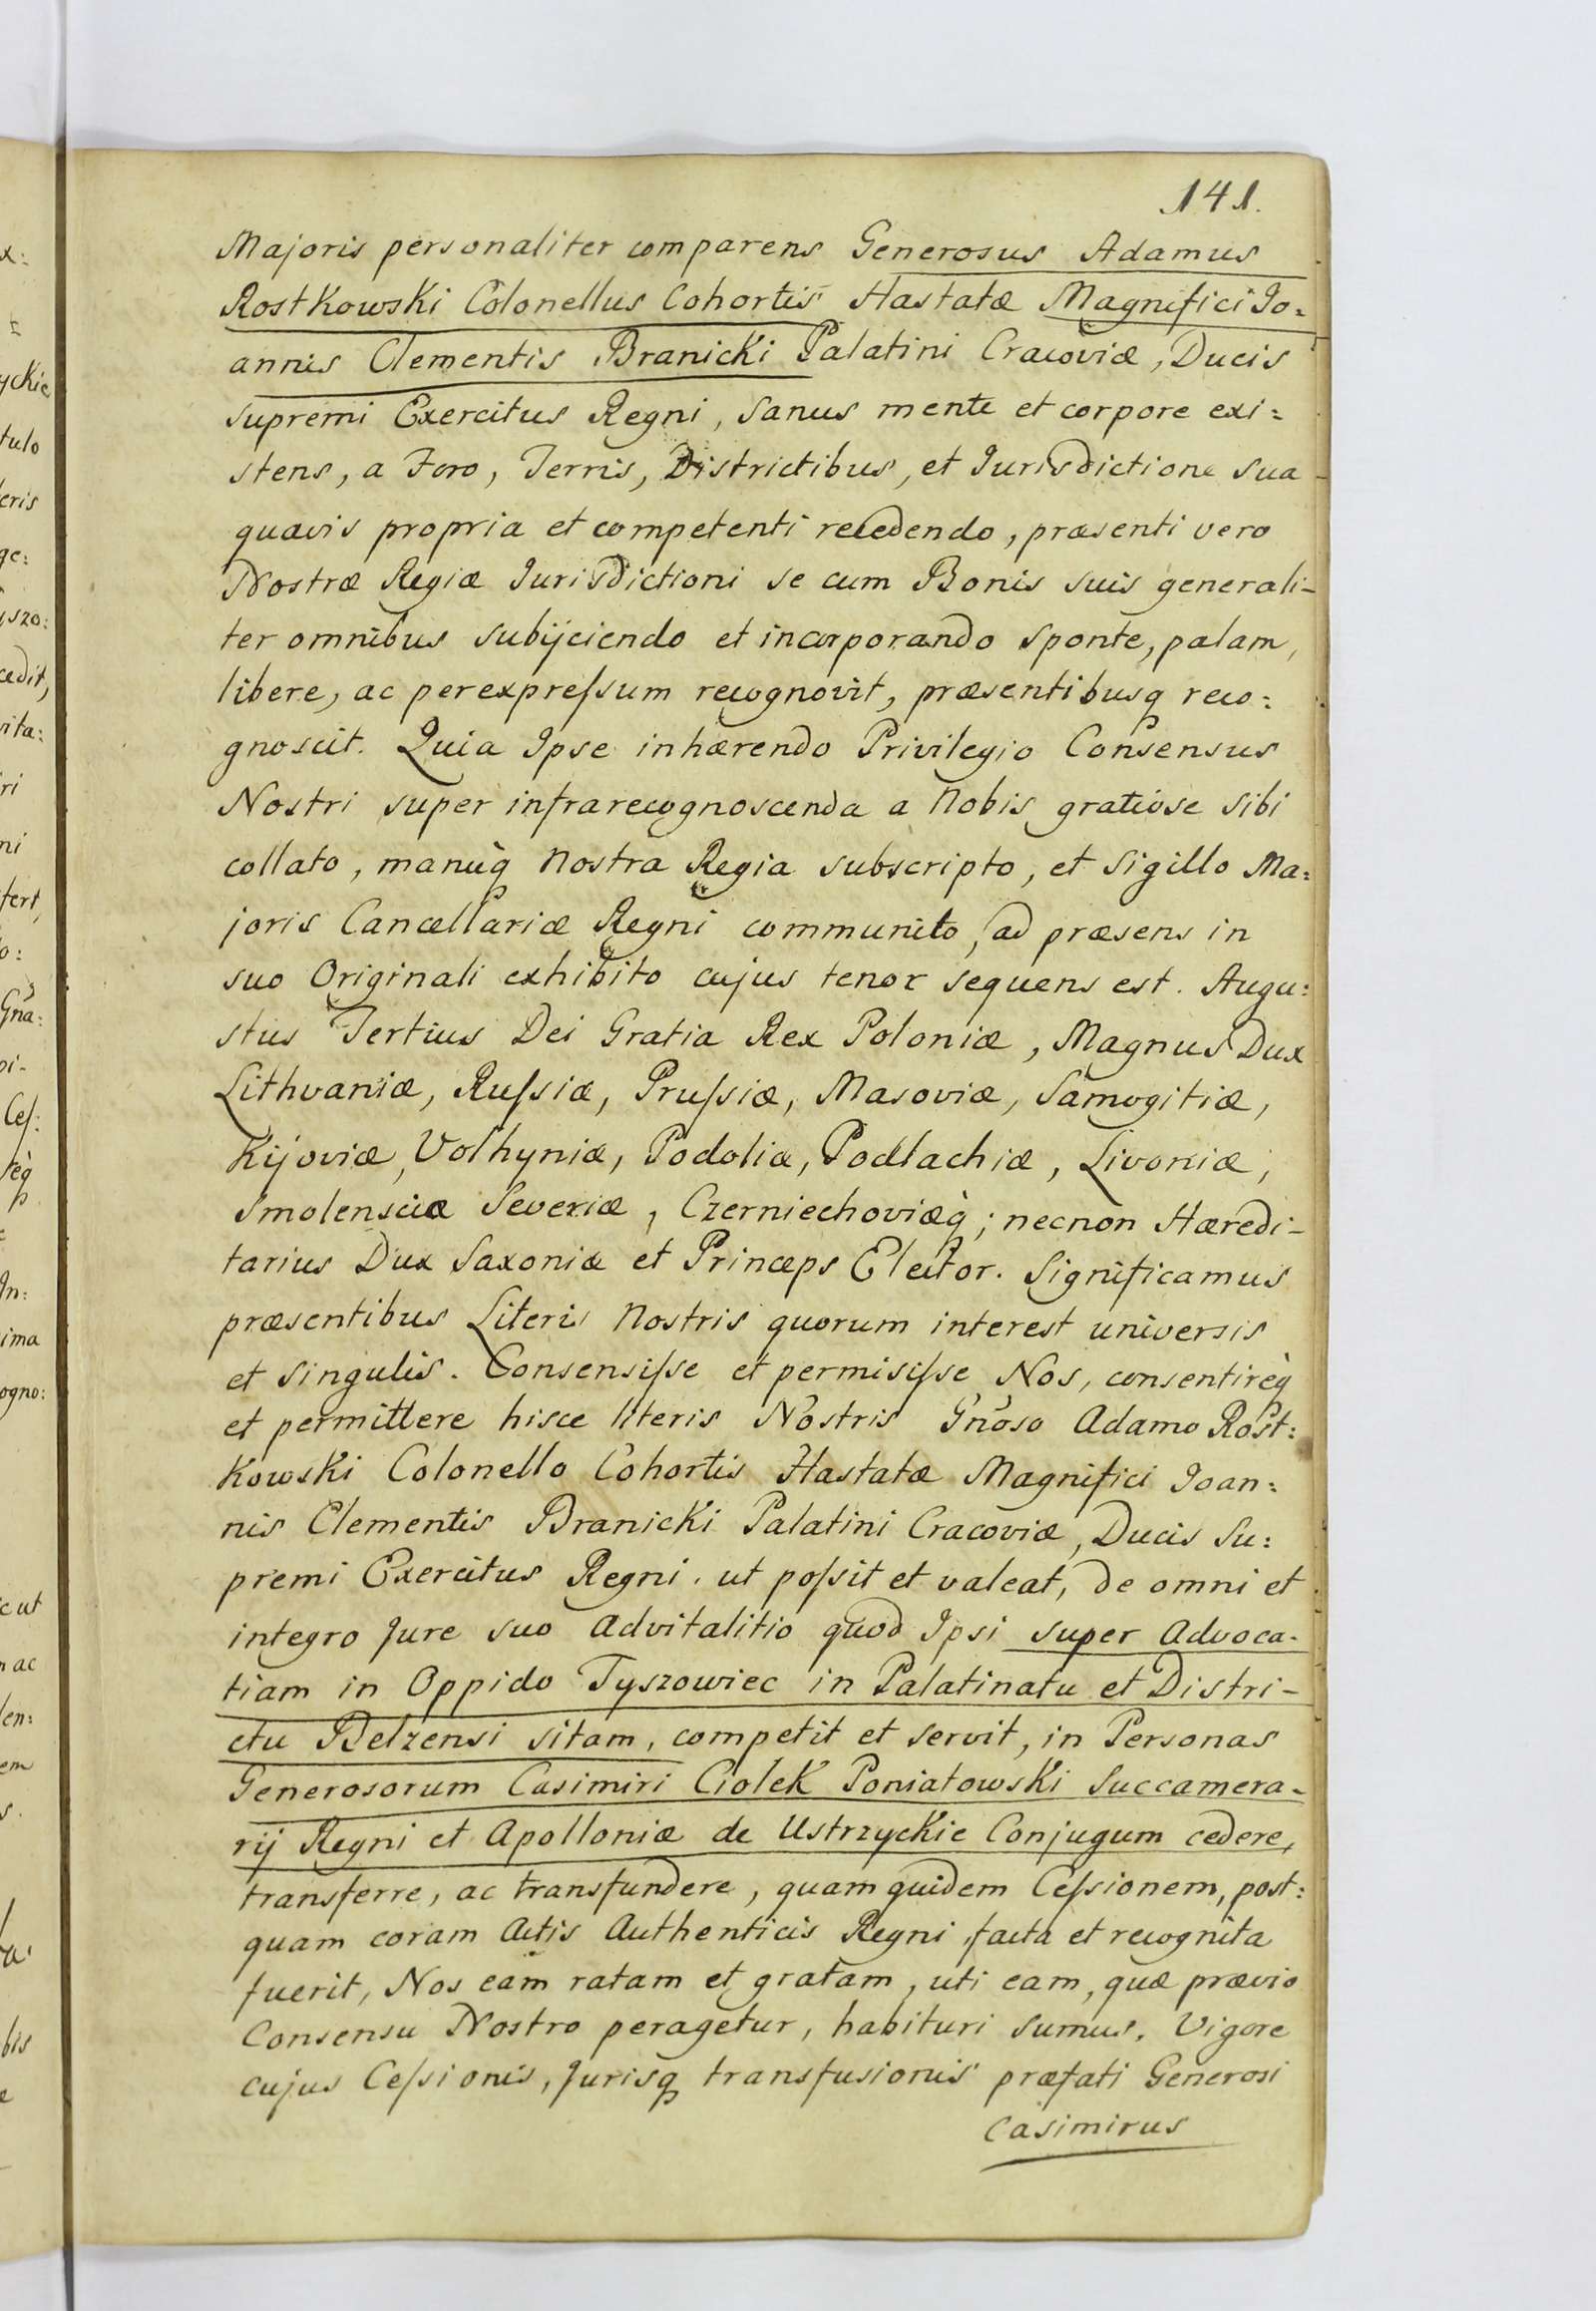 141.
Majoris personaliter comparens Generosus Adamus
Rostkowski Colonellus Cohortis Hastatæ Magnifici Jo=
annis Clementis Branicki Palatini Cracoviæ, Ducis
supremi Exercitus Regni, sanus mente et corpore exi=
stens, a Foro, Terris, Districtibus, et Jurisdictione sua
quavis propria et competenti recedendo, præsenti vero
Nostræ Regiæ Jurisdictioni se cum Bonis suis generali-
ter omnibus subijciendo et incorporando sponte, palam,
libere, ac perexpreſsum recognovit, præsentibusq reco=
gnoscit. Quia Ipse inhærendo Privilegio Consensus
Nostri super infrarecognoscenda a Nobis gratiose sibi
collato, manuq̀ Nostra Regia subscripto, et Sigillo Ma=
joris Cancellariæ Regni communito, ad præsens in
suo Originali exhibito cujus tenor sequens est. Augu=
stus Tertius Dei Gratia Rex Poloniæ, Magnus Dux
Lithvaniæ, Ruſsiæ, Pruſsiæ, Masoviæ, Samogitiæ,
Kijoviæ, Volhyniæ, Podoliæ, Podlachiæ, Livoniæ,
Smolensciæ Severiæ, Czerniechoviæq̀; necnon Hæredi-
tarius Dux Saxoniæ et Princeps Elector. Significamus
præsentibus Literis Nostris quorum interest universis
et singulis. Consensiſse et permisiſse Nos, consentireq̀
et permittere hisce literis Nostris Gñoso Adamo Rost=
kowski Colonello Cohortis Hastatæ Magnifici Joan=
nis Clementis Branicki Palatini Cracoviæ, Ducis Su=
premi Exercitus Regni. ut poſsit et valeat, de omni et
integro Jure suo Advitalitio quod Ipsi super Advoca-
tiam in Oppido Tyszowiec in Palatinatu et Distri-
ctu Belzensi sitam, competit et servit, in Personas
Generosorum Casimiri Ciolek Poniatowski Succamera-
rij Regni et Apolloniæ de Ustrzyckie Conjugum cedere,
transferre, ac transfundere, quam quidem Ceſsionem, post=
quam coram Actis Authenticis Regni facta et recognita
fuerit, Nos eam ratam et gratam, uti eam, quæ prævio
Consensu Nostro peragetur, habituri sumus. Vigore
cujus Ceſsionis, Jurisq transfusionis præfati Generosi
Casimirus